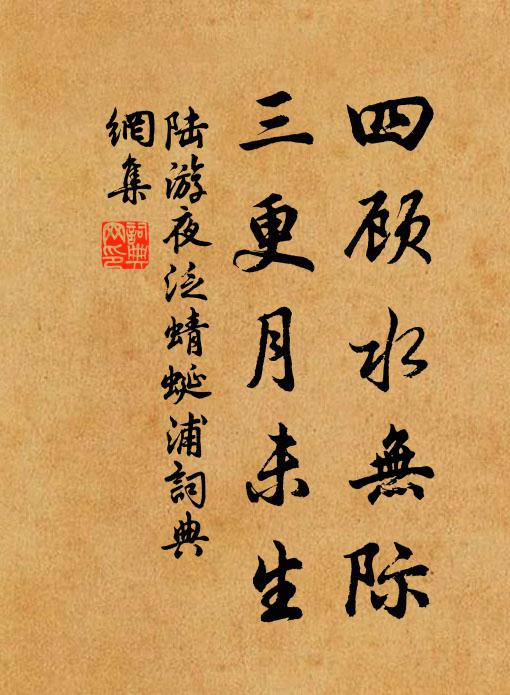 四顾水無际
三更月未生
陆游夜泛蜻蜓浦詞典
網集
詞典
网印